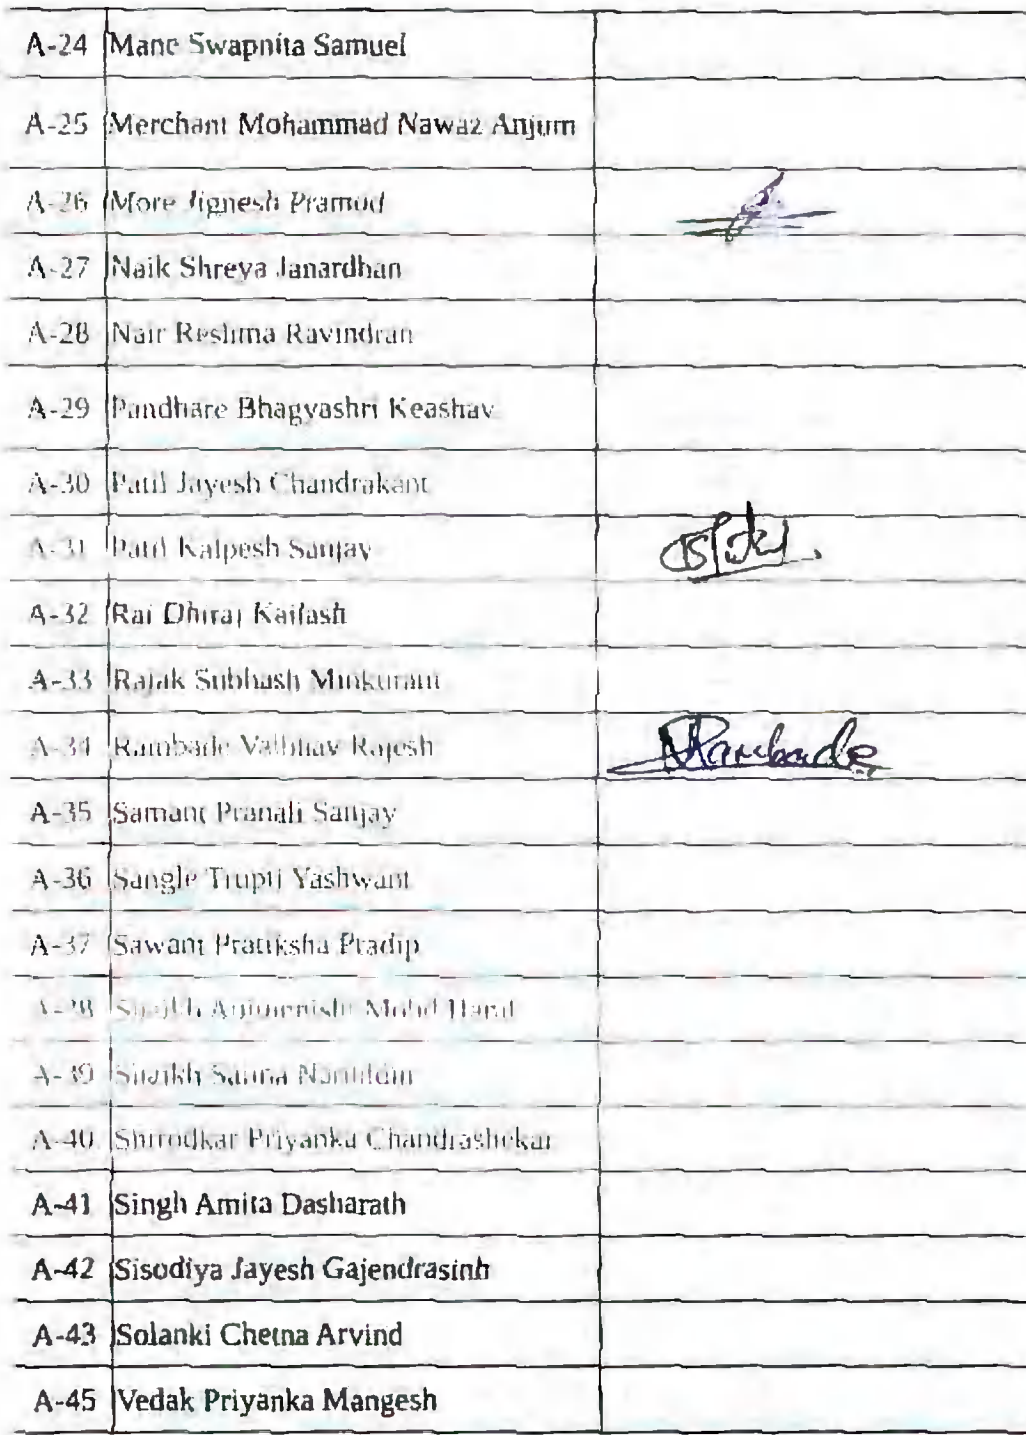 A-24 Mane Swapnita Samuel
A-25 Merchant Mohammad Nawaz Anjum
A-26 More Jignesh Pramod
A-27 Naik Shreya Janardhan
A-28 Nair Reshma Ravindran
A-29 Pandhare Bhagyashri Keashav
A-30 Patil Jayesh Chandrakant
A-31 Patil Kalpesh Sanjay
A-32 Rai Dhiraj Kailash
A-33 Rajak Subhash
A-34 Rambade Vaibhav Rajesh Rambade
A-35 Samant Pranali Sanjay
A-36 Sangle Trupti Yashwant
A-37 Sawant Pratiksha Pradip
A-38 Shaikh Mohd
A-39 Shaikh
A-40 Shirodkar Priyanka Chandrashekar
A-41 Singh Amita Dasharath
A-42 Sisodiya Jayesh Gajendrasinh
A-43 Solanki Chetna Arvind
A-45 Vedak Priyanka Mangesh